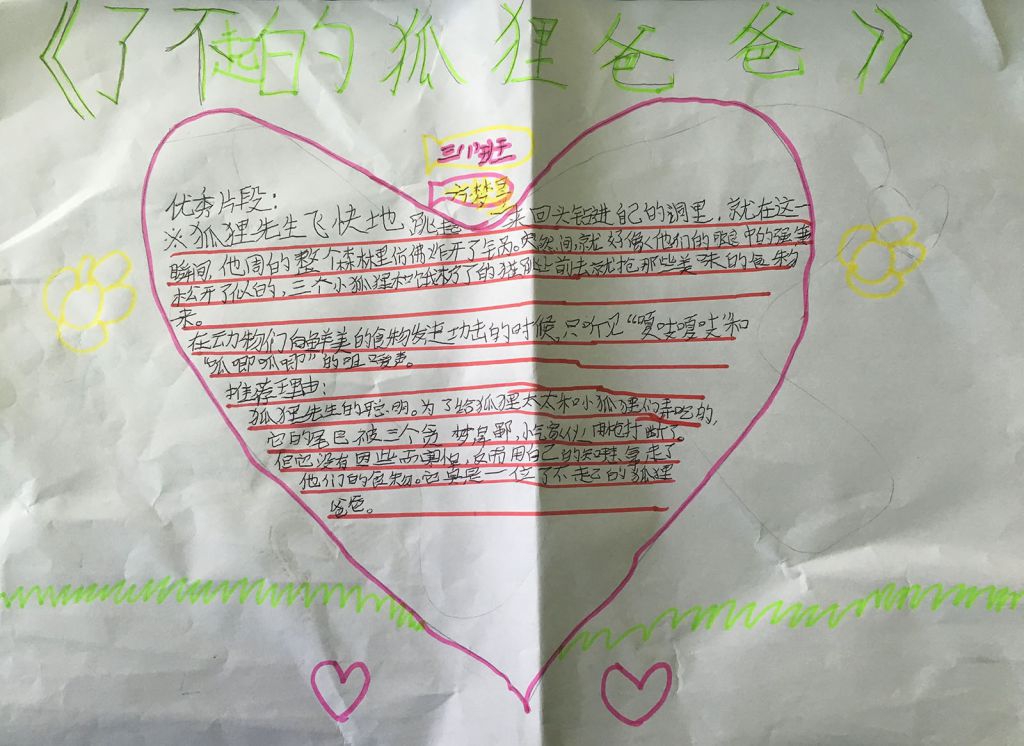 《了不起的狐狸爸爸》
三(1)班
梦
优秀片段：
※狐狸先生飞快地，跳 来回头钻进自己的洞里，就在这一
瞬间，他周的整个森林里仿佛炸开了气锅。突然间，就好像他们的眼中的强
松开了似的，三个小狐狸 饿 了的 上前去就抢那些美味的食物
来。
在动物们向鲜美的食物发起功击的时候，只听见“嘎吱嘎吱”和
“呱唧呱唧”的咀嚼声。
推荐理由：
狐狸先生的聪明。为了给狐狸太太和小狐狸们弄吃的，
它的尾巴被三个贪 小气 用枪打断了。
但它没有因此而害怕，反而用自己的 走了
他们的食物。它真是一位了不起的狐狸
爸爸。